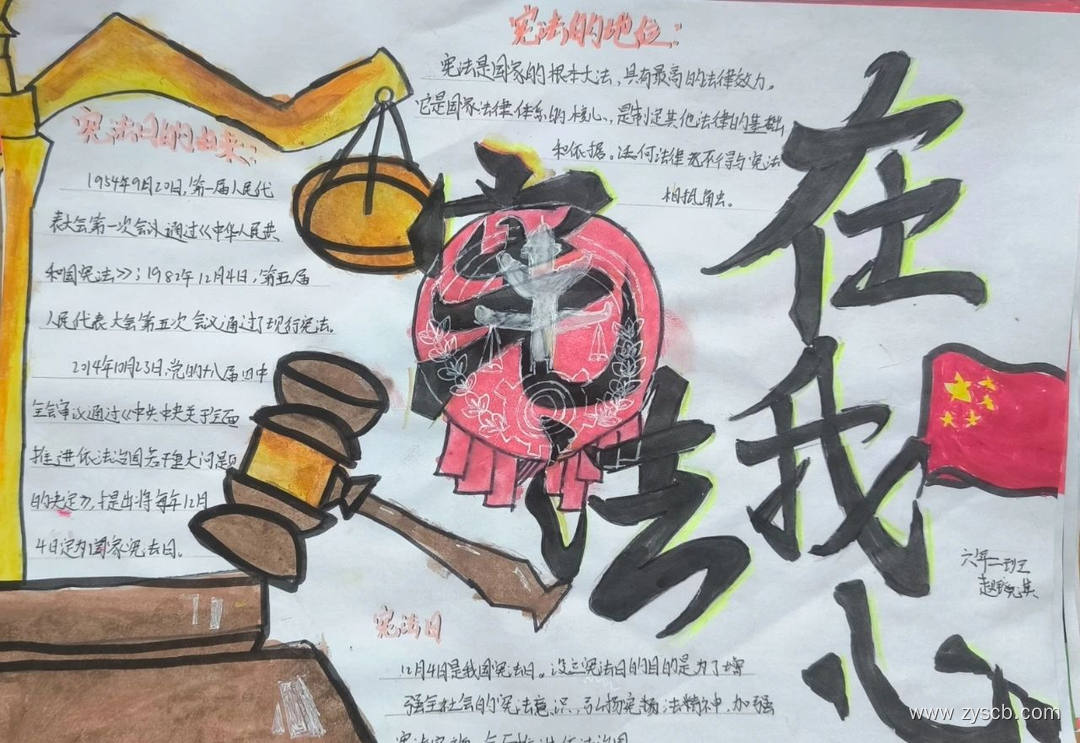 宪法在我心
宪法的地位:
宪法是国家的根本大法,具有最高的法律效力。
它是国家法律体系的核心,是制定其他法律的基础
和依据。任何法律都不得与宪法
相抵触。
宪法日的由来:
1954年9月20日,第一届人民代
表大会第一次会议通过《中华人民共
和国宪法》;1982年12月4日,第五届
人民代表大会第五次会议通过了现行宪法。
2014年10月23日,党的十八届四中
全会审议通过《中共中央关于全面
推进依法治国若干重大问题
的决定》,提出将每年12月
4日定为国家宪法日。
宪法日
12月4日是我国宪法日。设立宪法日的目的是为了增
强全社会的宪法意识,弘扬宪法精神,加强
六年二班
www.zyscb.com